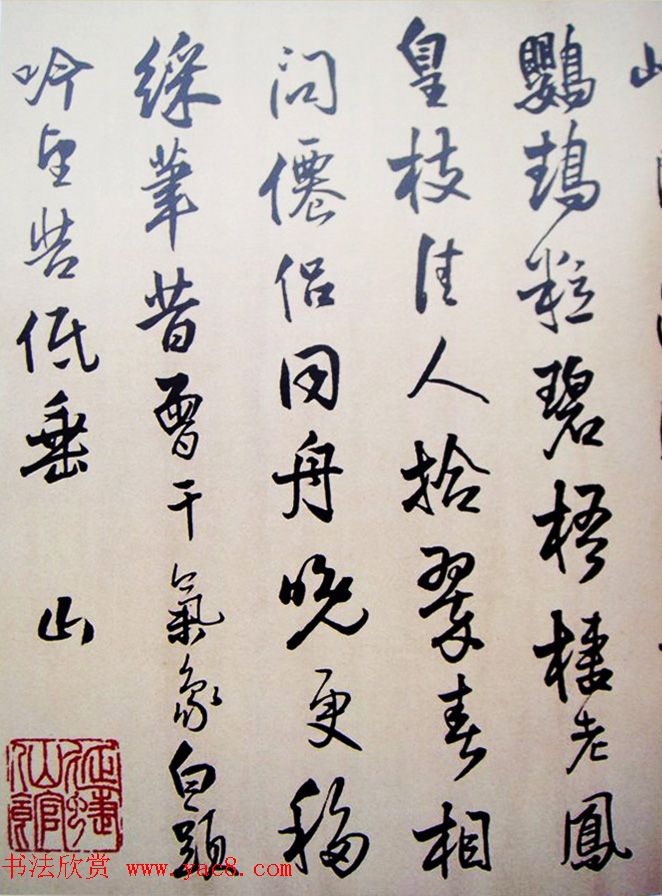 鸚鵡粒碧梧棲老鳳
皇枝佳人拾翠春相
問僊侶同舟晚更移
綵筆昔曾干氣象白頭
吟望苦低垂 山
书法欣赏 www.yac8.com